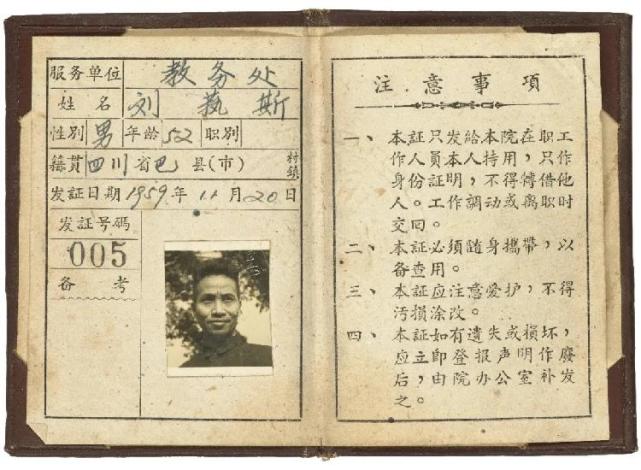 服务单位 教务处
姓名 刘执斯
性别 男 年龄 52 职别
籍貫 四川省巴县(市) 村鎮
发証日期 1959年11月20日
发証号码
005
备考
注意事項
一、本証只发給本院在职工
作人員本人持用，只作
身份証明，不得轉借他
人。工作調动或离职时
交回。
二、本証必須随身攜帶，以
备查用。
三、本証应注意爱护，不得
汚損涂改。
四、本証如有遺失或損坏，
应立即登报声明作廢
后，由院办公室补发
之。